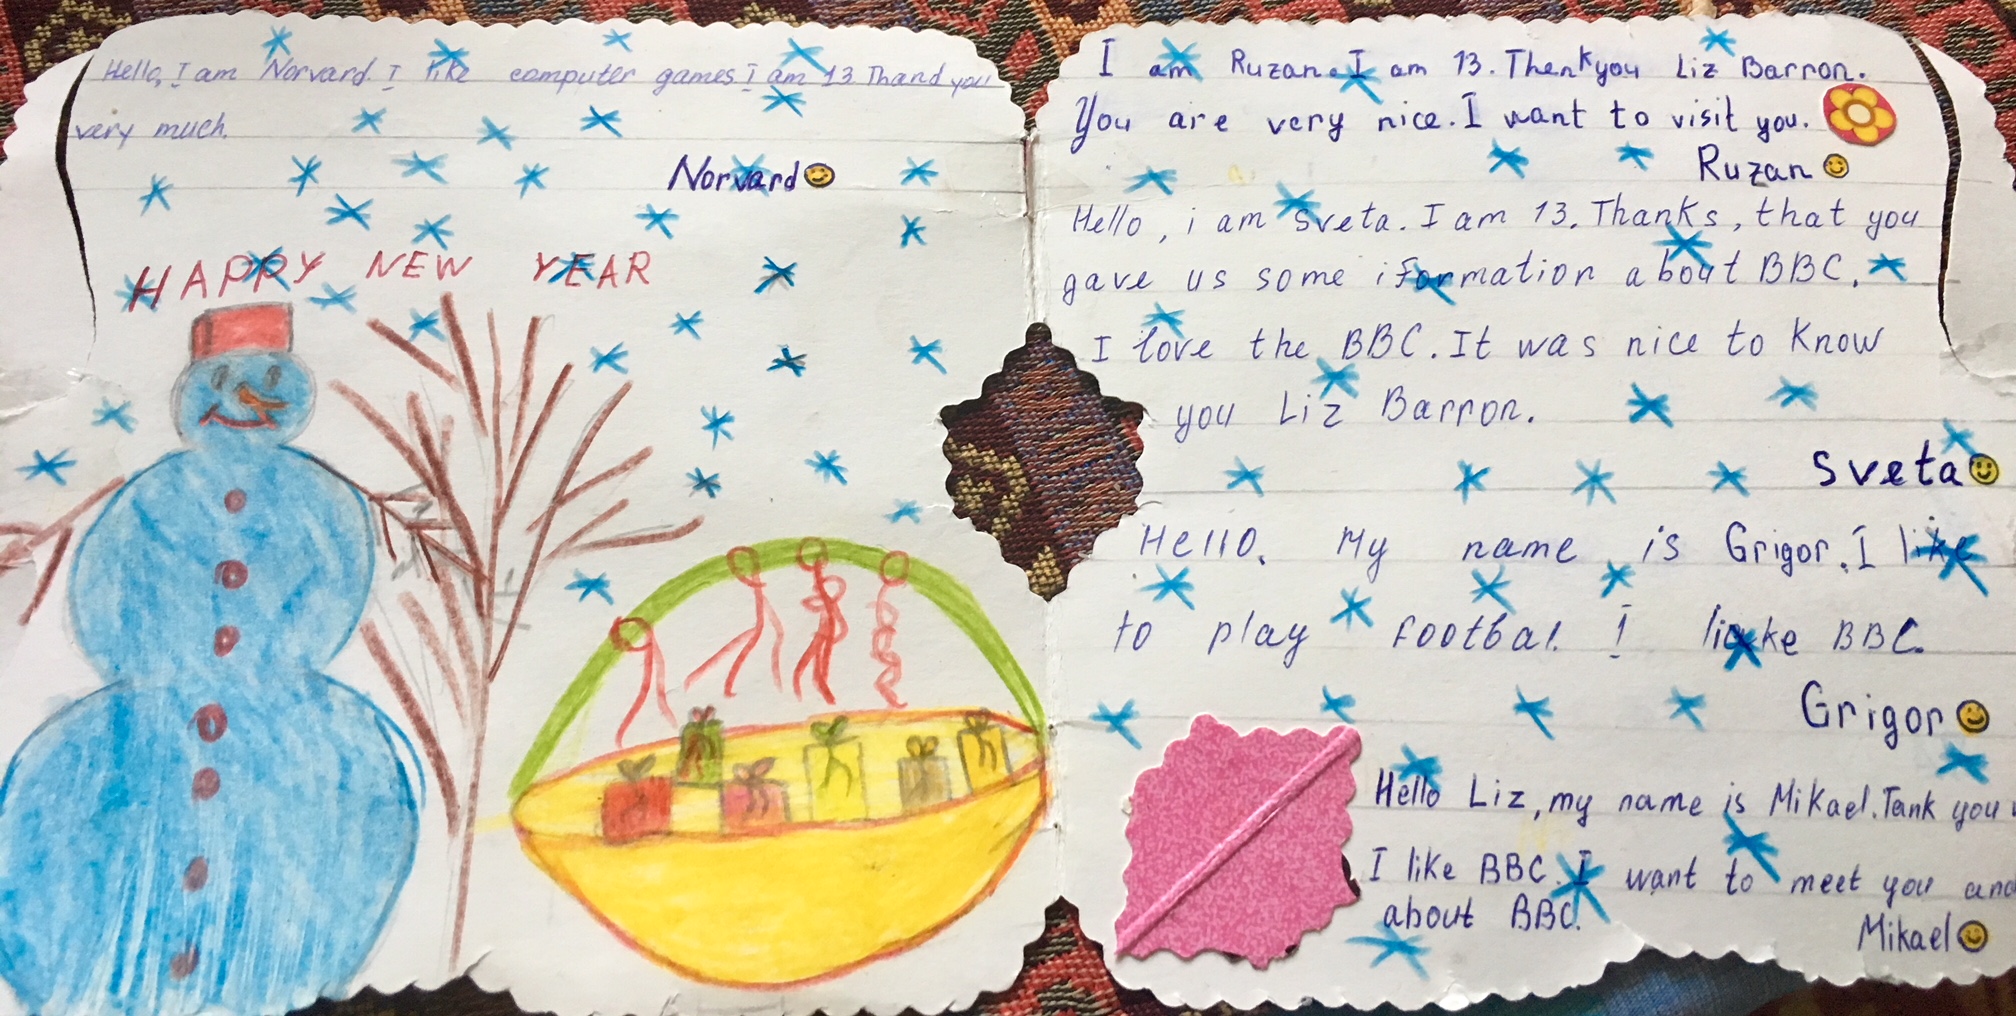 Hello, I am Norvard. I like computer games I am 13 Thand you
very much.
Norvard
HAPPY NEW YEAR
I am Ruzan. I am 13. Thenkyou Liz Barron.
You are very nice. I want to visit you.
Ruzan
Hello, i am Sveta. I am 13. Thanks, that you
gave us some iformation about BBC.
I love the BBC. It was nice to know
you Liz Barron.
Sveta
Hello. My name is Grigor. I like
to play footbal. I like BBC.
Grigor
Hello Liz, my name is Mikael. Tank you
I like BBC. I want to meet you and
about BBC.
Mikael